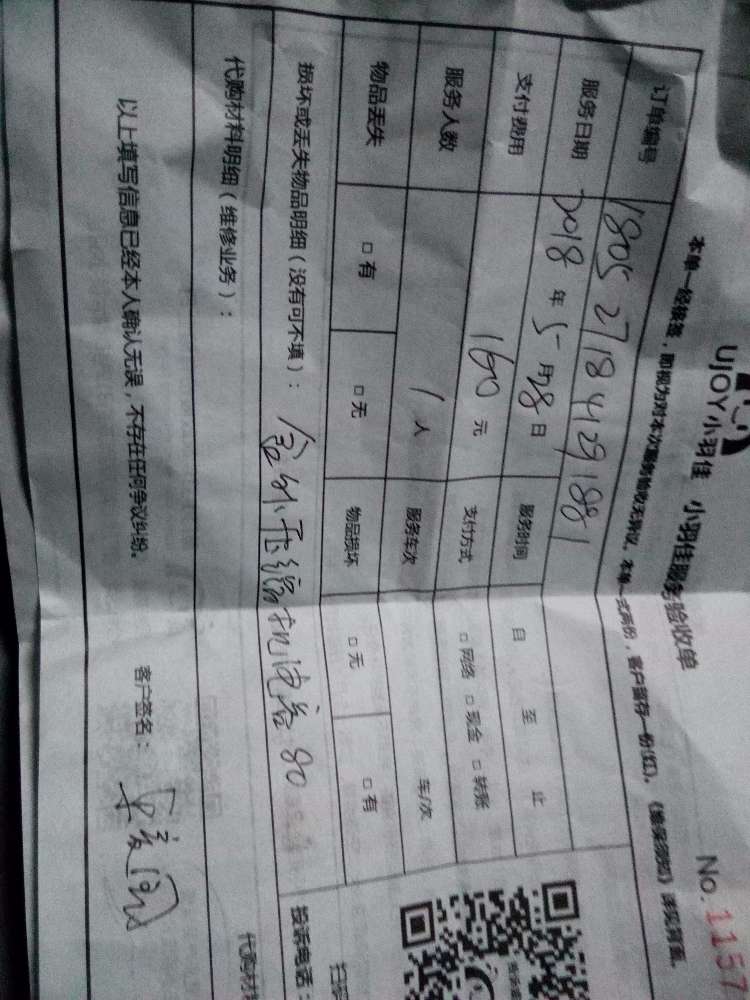 UJOY小羽佳 小羽佳服务验收单
No.1157
本单一经接签，即视为对本次服务验收无异议。本单一式两份，客户留存一份(红)。
订单编号 180527184291881
服务日期 2018年5月28日 服务时间 自 至 止
支付费用 160元 支付方式 □网络 □现金 □转账
服务人数 1人 服务车次 车/次
物品丢失 □有 □无 物品损坏 □无 □有
损坏或丢失物品明细（没有可不填）： 含外压缩机电容80
投诉电话：
代购材料明细（维修业务）：
以上填写信息已经本人确认无误，不存在任何争议纠纷。 客户签名：